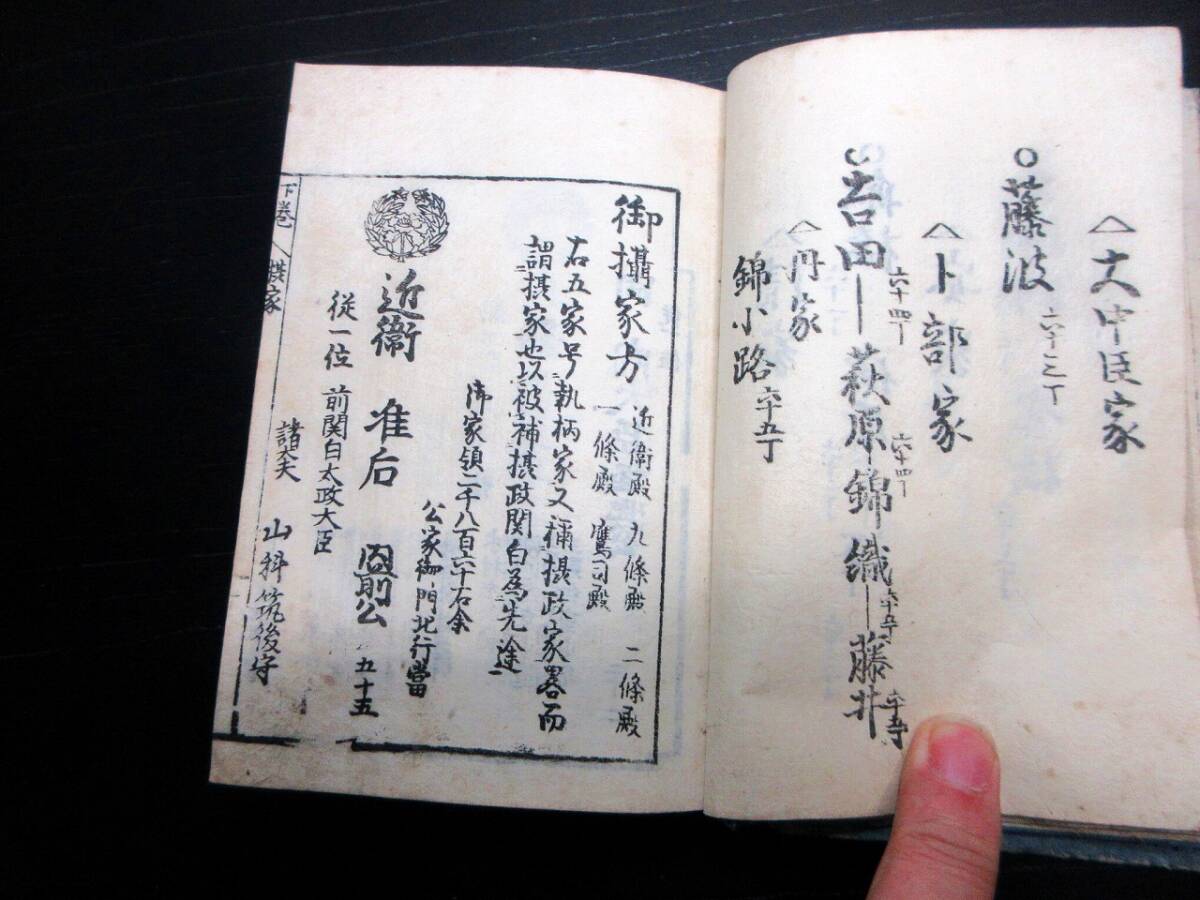 へ大中臣家
○藤波 六十三丁
へ卜部家
○吉田 六十四丁 萩原 六十四丁 錦織 六十五丁 藤井 六十五丁
へ丹家
錦小路 六十五丁
御攝家方 近衞殿 九條殿 二條殿
一條殿 鷹司殿
右五家号執柄家又稱摂政家畧而
謂摂家也以被補摂政関白為先途
御家領二千八百六十石余
公家御門北行當
近衞 准后 前公 五十五
従一位 前関白太政大臣
諸大夫 山科筑後守
下巻 摂家